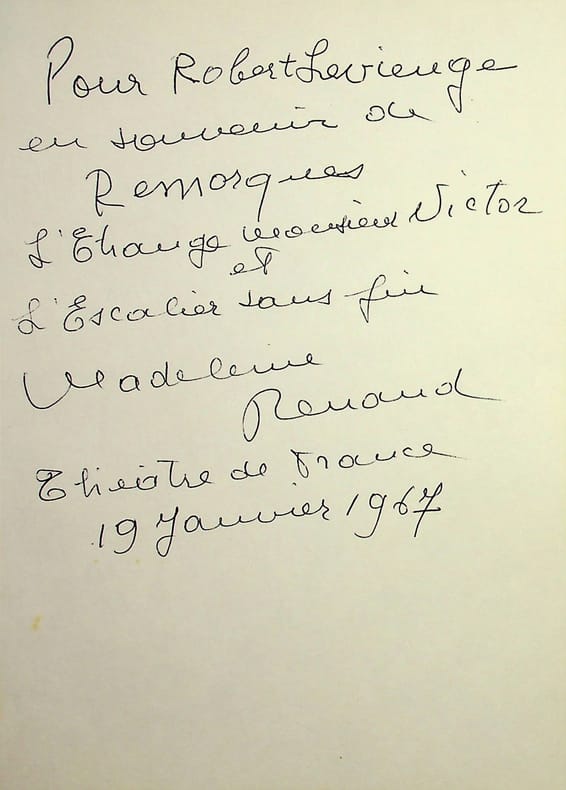 Pour Robert Lavienge
en souvenir de
Remorques
L'Etrange monsieur Victor
et
L'Escalier sans fin
Madeleine
Renaud
Théâtre de France
19 Janvier 1967